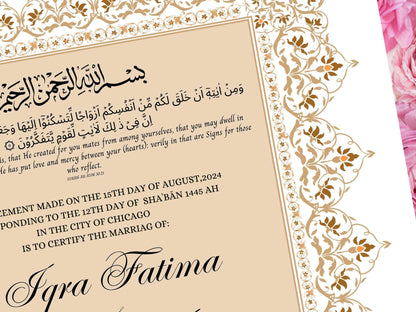 بسم الله الرحمن الرحيم
وَمِنْ اٰيٰتِهٖٓ اَنْ خَلَقَ لَكُمْ مِّنْ اَنْفُسِكُمْ اَزْوَاجًا لِّتَسْكُنُوْٓا اِلَيْهَا وَجَعَ
اِنَّ فِيْ ذٰلِكَ لَاٰيٰتٍ لِّقَوْمٍ يَّتَفَكَّرُوْنَ
is, that He created for you mates from among yourselves, that you may dwell in
He has put love and mercy between your (hearts): verily in that are Signs for those
who reflect.
CEMENT MADE ON THE 15TH DAY OF AUGUST,2024
SPONDING TO THE 12TH DAY OF SHA'BĀN 1445 AH
IN THE CITY OF CHICAGO
IS TO CERTIFY THE MARRIAG OF:
Iqra Fatima